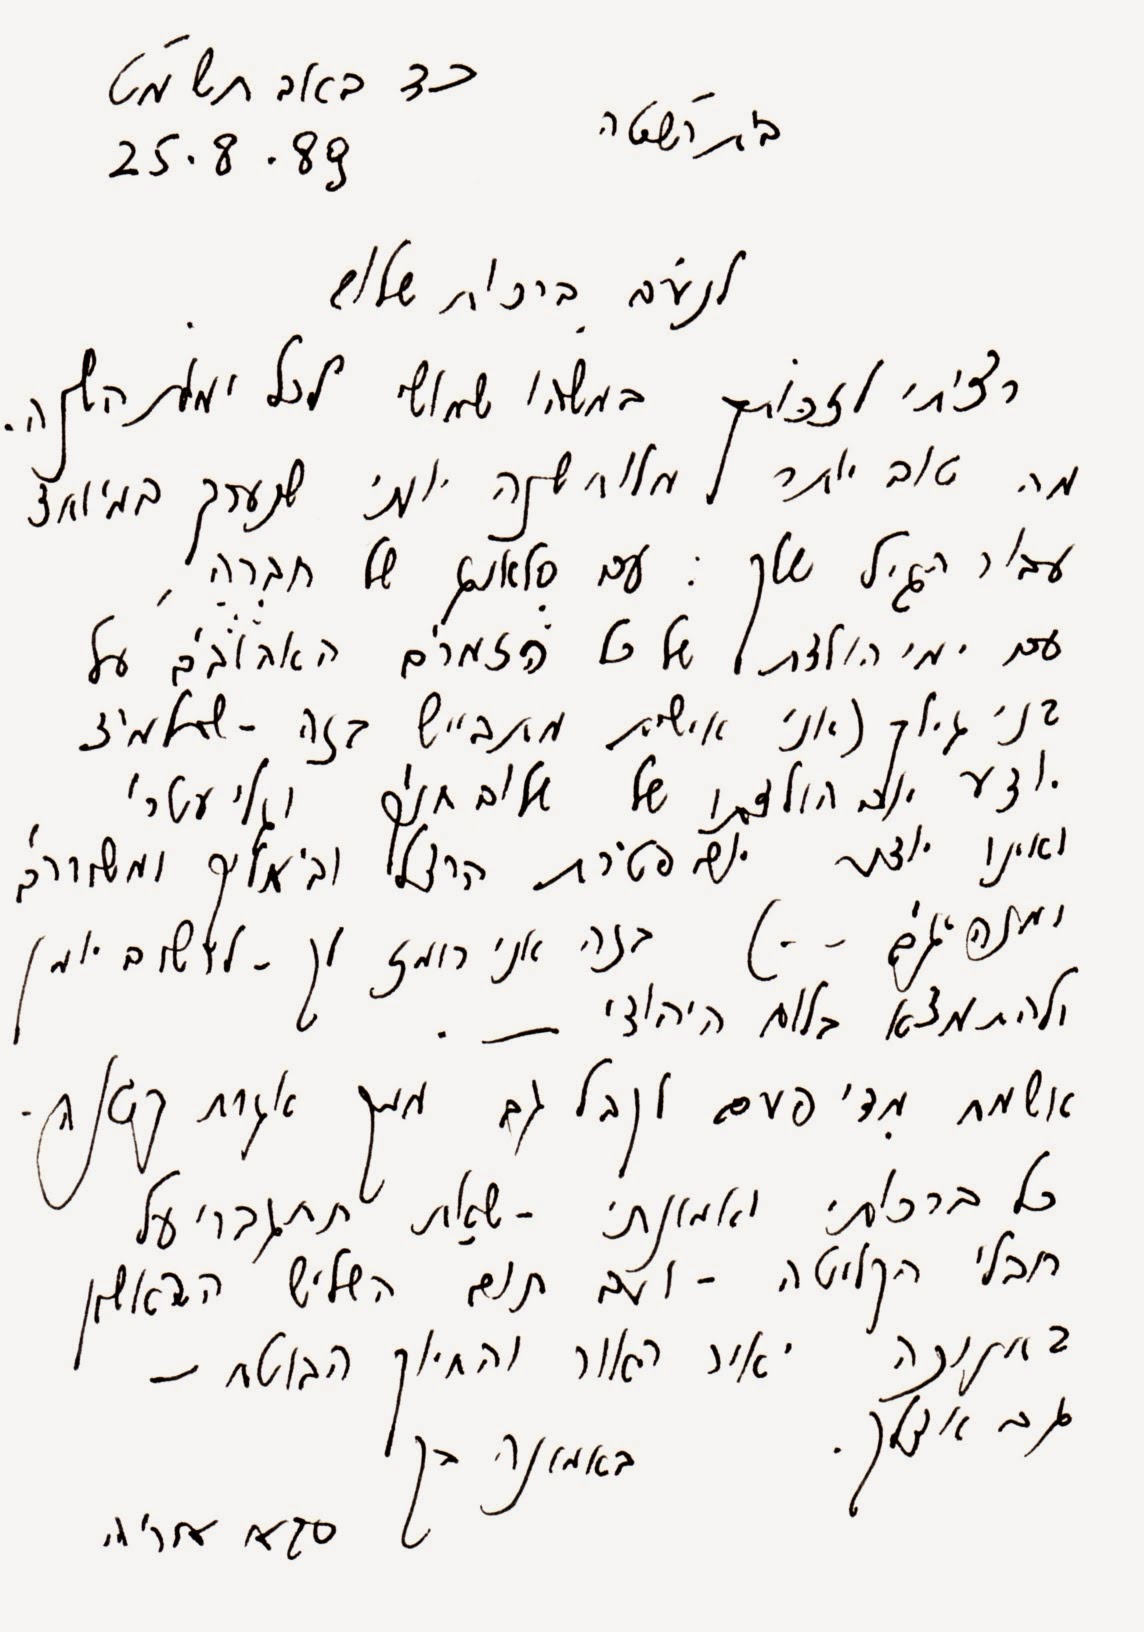 כד באב תשמ"ט
בית השיטה
25.8.89
לנעם ברכות שלום
רציתי לזכותך במשהו שמושי לכל ימות השנה.
מה טוב יותר מלוח שנה יומי שנערך במיוחד
עבור הגיל שלך: עם סלאנג של חברה,
עם ימי הולדת של כל הזמרים האהובים על
בני גילך (אני אישית מתבייש בזה - שתלמיד
יודע יום הולדתו של שלום חנוך וגלי עטרי
ואינו יודע יום פטירת הרצל וביאליק ומשוררים
ומנהיגים - -) בזה אני רומז לך - לרשום יומן
ולהתמצא בלוח היהודי —.
אשמח מדי פעם לקבל גם ממך אגרת קטנה.
כל ברכותי ואמונתי - שאת תתגברי על
חבלי הקליטה - ועם תום השליש הראשון
בחנוכה יאיר האור והחיוך הבוטח —
גם אצלך.
באמונה בך
סבא אריה